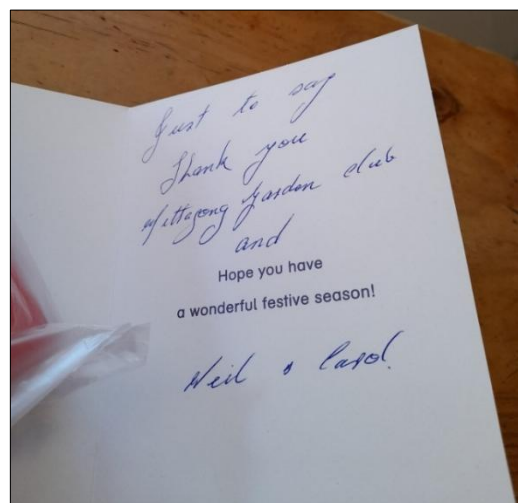 Just to say
Thank you
Mittagong Garden club
and
Hope you have
a wonderful festive season!
Neil & Carol.